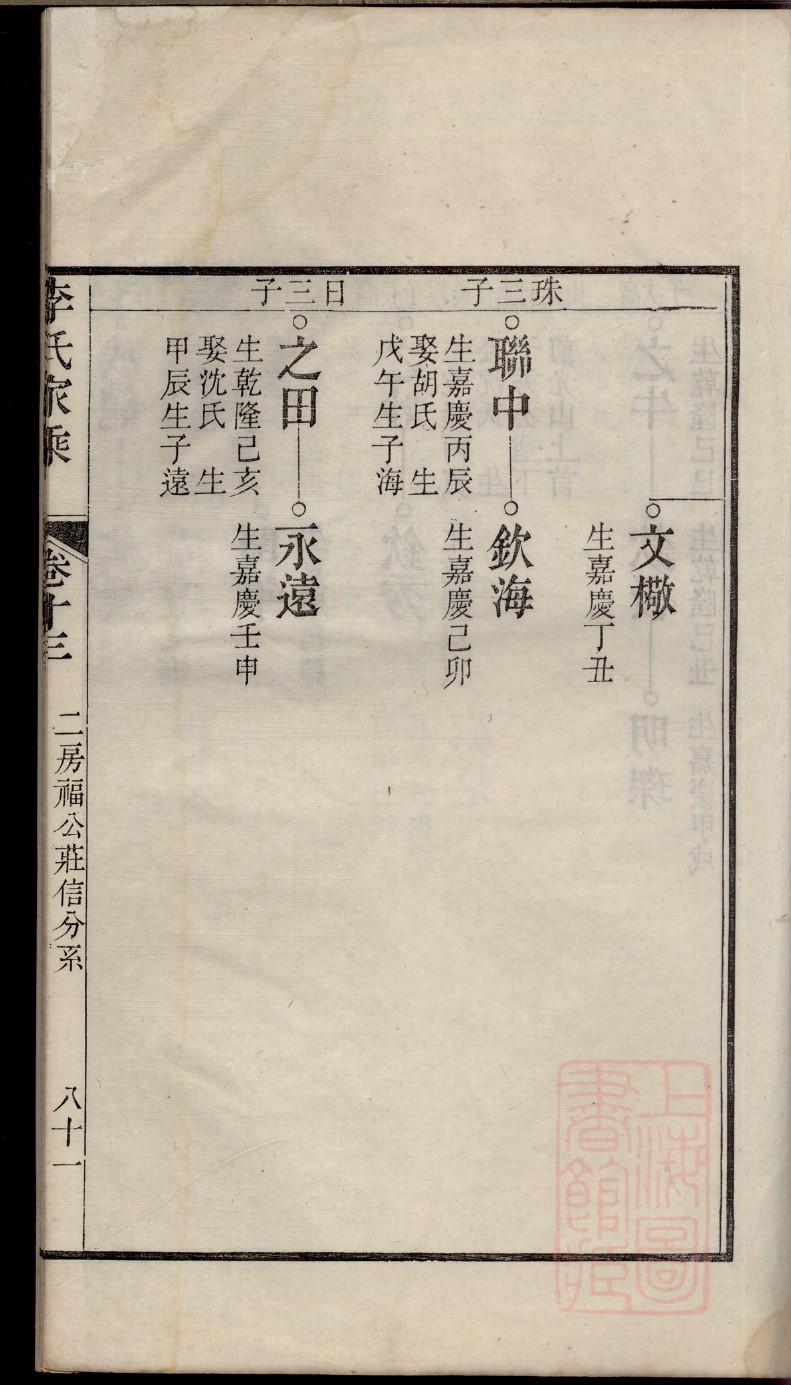 文檝
生嘉慶丁丑
珠三子
聯中
生嘉慶丙辰
娶胡氏 生
戊午生子海
欽海
生嘉慶己卯
日三子
之田
生乾隆己亥
娶沈氏 生
甲辰生子遠
永遠
生嘉慶壬申
李氏家乘
卷十三
二房福公莊信分系
八十一
上海圖
書館藏